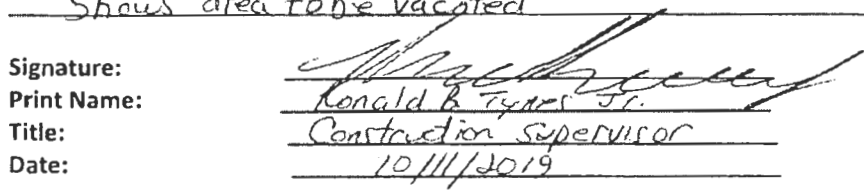 Shows area to be vacated
Signature:
Print Name: Ronald B. Tynes Jr.
Title: Construction Supervisor
Date: 10/11/2019